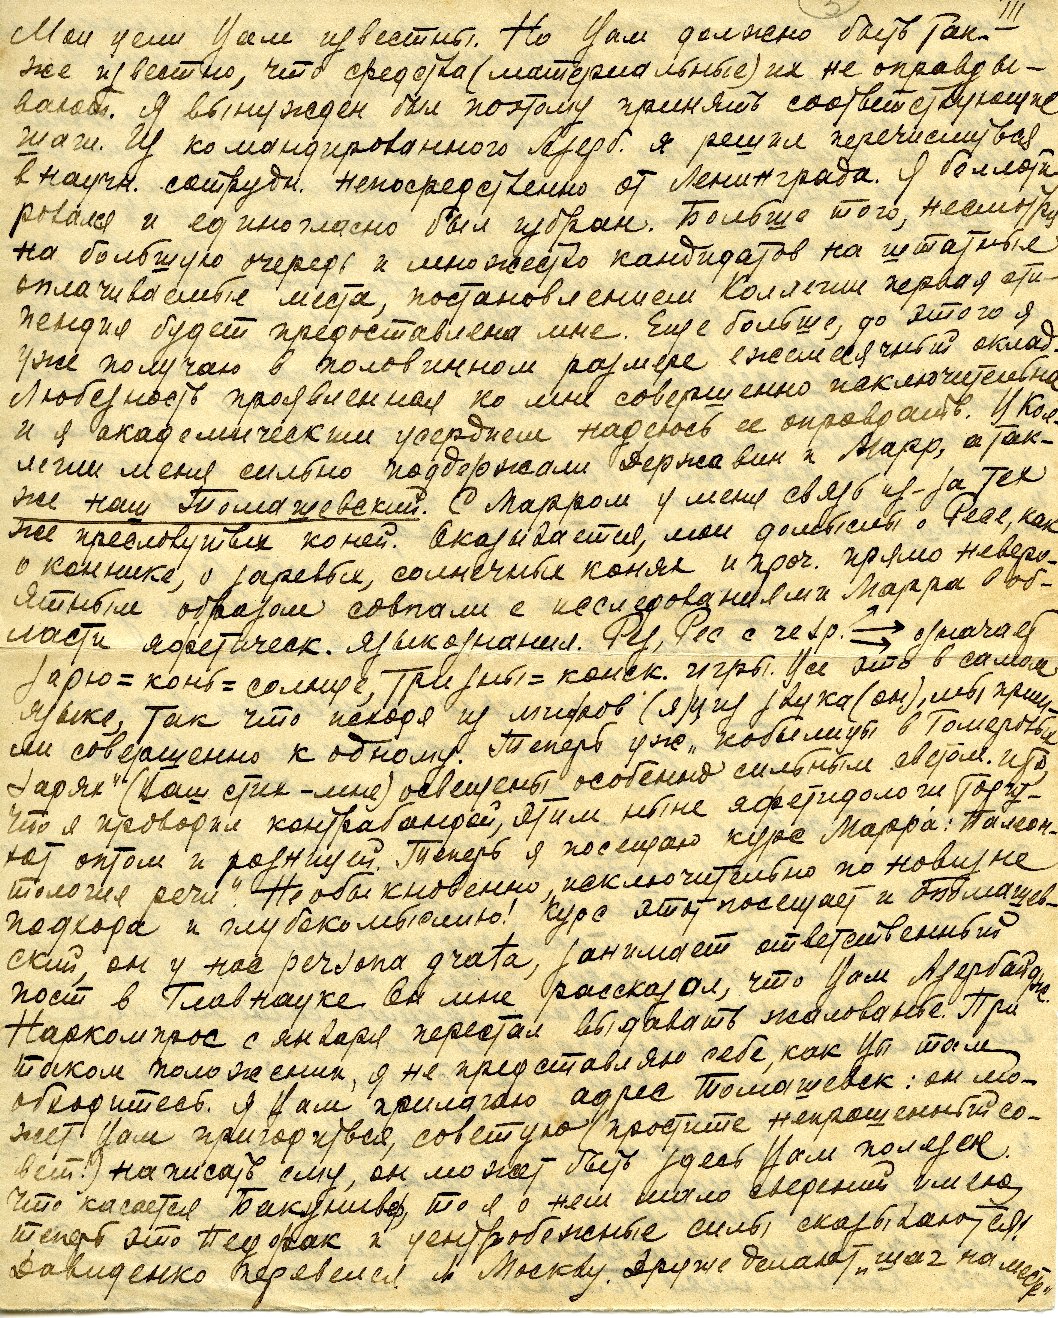 3 III
Мои цели Вам известны. Но Вам должно быть так-
же известно, что средства (материальные) их не оправды-
вают. Я вынужден был поэтому принять соответствующие
шаги. Из командированного Азерб. я решил перечислиться
в научн. сотрудн. непосредственно от Ленинграда. Я баллоти-
ровался и единогласно был избран. Больше того, несмотря
на большую очередь и множество кандидатов на штатные
оплачиваемые места, постановлением Коллегии первая сти-
пендия будет предоставлена мне. Еще больше, до этого я
уже получаю в половинном размере ежемесячный оклад.
Любезность проявленная ко мне совершенно исключительна
и я академическим усердием надеюсь ее оправдать. В Кол-
легии меня сильно поддержали Державин и Марр, а так-
же наш Томашевский. С Марром у меня связь из-за тех
же пресловутых коней. Оказывается, мои домыслы оРесе, как
о коннике, о заревых, солнечных конях и проч. прямо неверо-
ятным образом совпали с исследованиями Марра в об-
ласти яфетическ. языкознания. Рез, Рес с чер. означает
зарю = конь = солнце, тризны = конск. игры. Все это в самом
языке, так что исходя из мифов (я) и из звука (он), мы приш-
ли совершенно к одному. Теперь уж „кобылицы в Гомеровых
зарях" (Ваш стих – мне) освещены особенно сильным светом. И то,
что я проводил контрабандой, этим ныне яфетидологи торгу-
ют оптом и розницей. Теперь я посещаю курс Марра: „Палеон-
тология речи" Необыкновенно, исключительно по новизне
подхода и глубокомыслию! Курс этот посещает и Томашев-
ский, он у нас persona grata, занимает ответственный
пост в Главнауке. Он мне рассказал, что Вам Азербайдж.
Наркомпрос с января перестал выдавать жалованье. При
таком положении, я не представляю себе, как Вы там
обходитесь. Я Вам прилагаю адрес Томашевск: он мо-
жет Вам пригодиться, советую (простите непрошенный со-
вет!) написать ему, он может быть здесь Вам полезен.
Что касается Бакунивер, то я о нем мало сведений имею,
теперь это Педфак и центробежные силы сказываются.
Давиденко перевелся в Москву. Друже делают „шаг на месте"